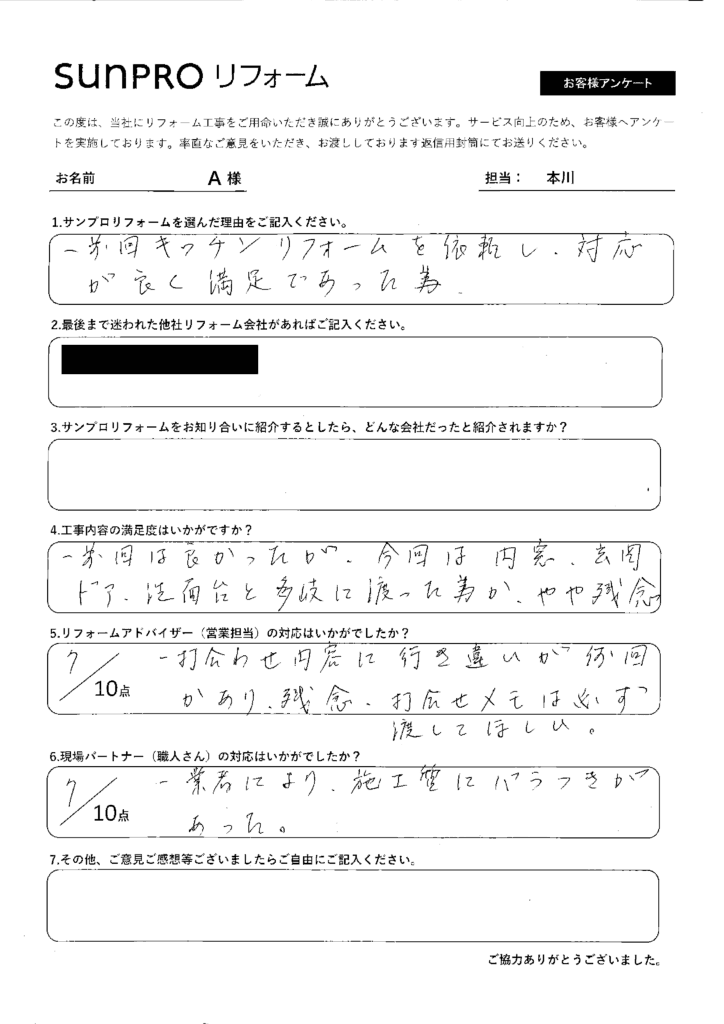 sunpro リフォーム
お客様アンケート
この度は、当社にリフォーム工事をご用命いただき誠にありがとうございます。サービス向上のため、お客様へアンケー
トを実施しております。率直なご意見をいただき、お渡ししております返信用封筒にてお送りください。
お名前 A 様 担当： 本川
1.サンプロリフォームを選んだ理由をご記入ください。
-前回キッチンリフォームを依頼し、対応
が良く満足であった為.
2.最後まで迷われた他社リフォーム会社があればご記入ください。
3.サンプロリフォームをお知り合いに紹介するとしたら、どんな会社だったと紹介されますか？
4.工事内容の満足度はいかがですか？
-前回は良かったが、今回は内窓、玄関
ドア、洗面台と多岐に渡った為か、やや残念。
5.リフォームアドバイザー（営業担当）の対応はいかがでしたか？
7/10点 -打合わせ内容に行き違いが何回
かあり、残念、打合せメモは必ず
渡してほしい。
6.現場パートナー（職人さん）の対応はいかがでしたか？
7/10点 -業者により、施工質にバラつきが
あった。
7.その他、ご意見ご感想等ございましたらご自由にご記入ください。
ご協力ありがとうございました。